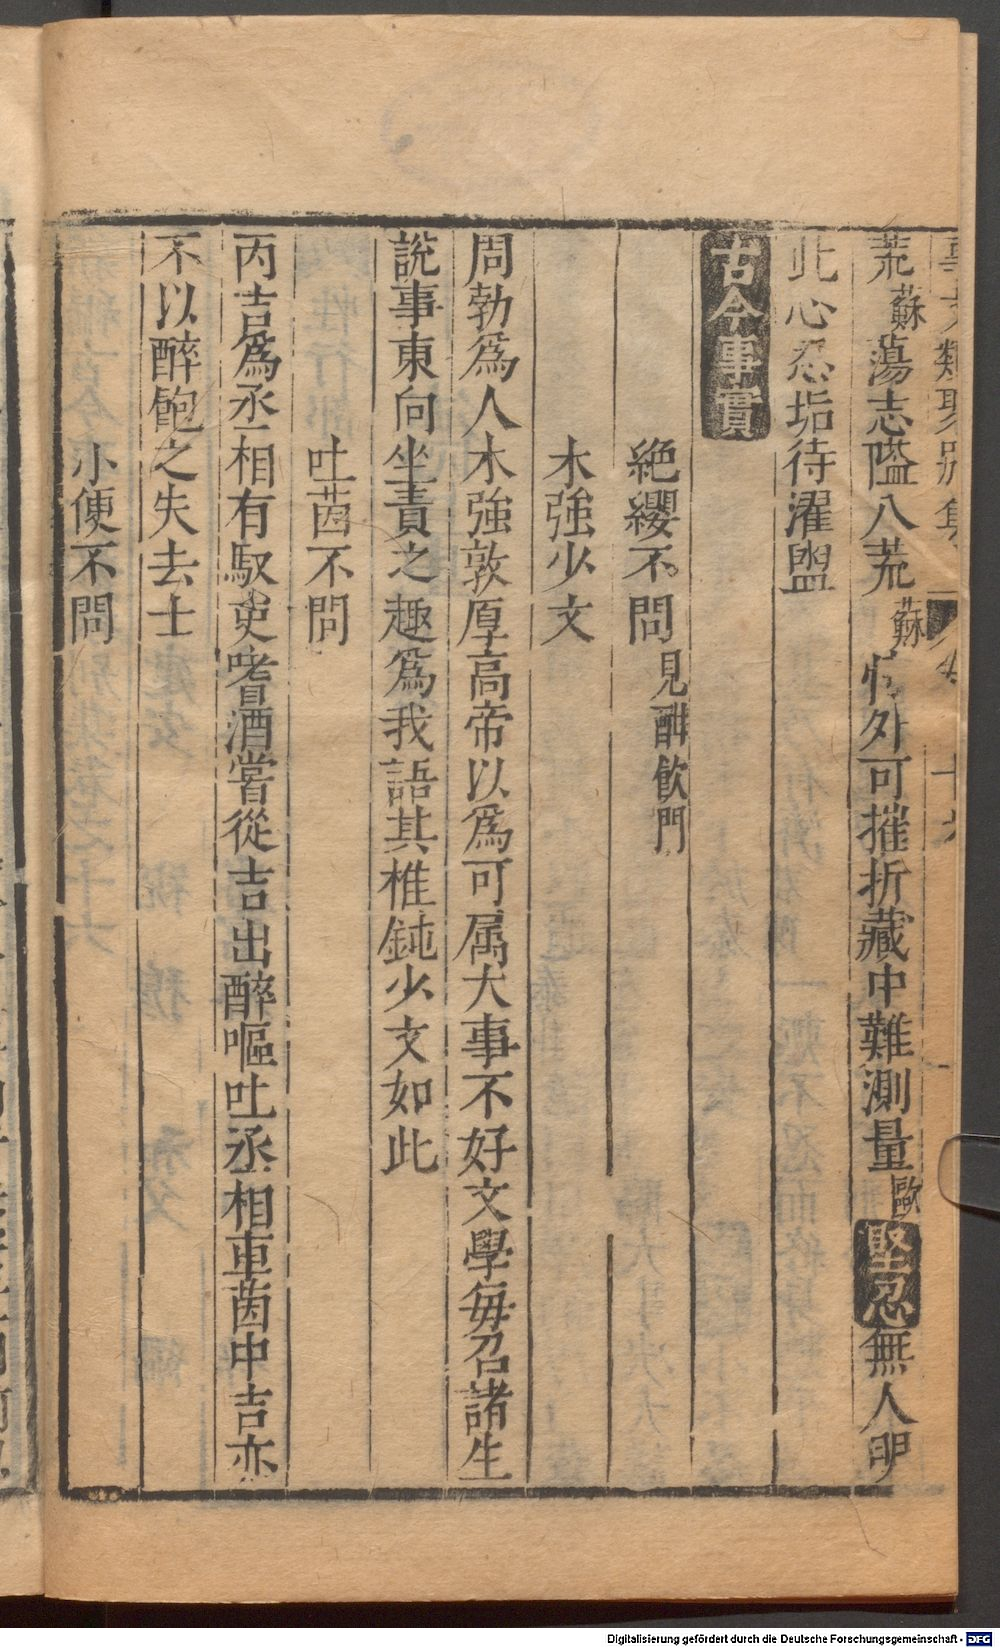 荒蘇蕩志隘八荒蘇情外可摧折藏中難測量歐堅忍無人明
此心忍垢待濯盥
古今事實
絶纓不問見酣飲門
木強少文
周勃爲人木強敦厚高帝以爲可属大事不好文學每召諸生
說事東向坐責之趣爲我語其椎鈍少文如此
吐茵不問
丙吉爲丞相有馭吏嗜酒嘗從吉出醉嘔吐丞相車茵中吉亦
不以醉飽之失去士
小便不問
Digitalisierung gefördert durch die Deutsche Forschungsgemeinschaft - DFG